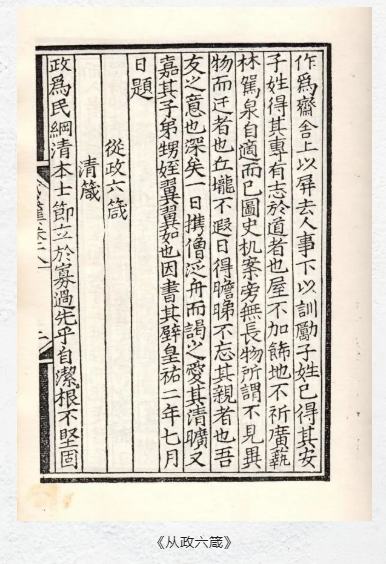 作爲齋舍上以屏去人事下以訓勵子姓已得其安
子姓得其專有志於道者也屋不加飾地不祈廣蓺
林駕泉自適而已圖史机案旁無長物所謂不見異
物而迁者也丘壠不遐日得瞻睇不忘其親者也吾
友之意也深矣一日携僧泛舟而謁之愛其清曠又
嘉其子弟甥姪翼翼如也因書其壁皇祐二年七月
日題
從政六箴
清箴
政爲民綱清本士節立於寡過先乎自潔根不堅固
《从政六箴》